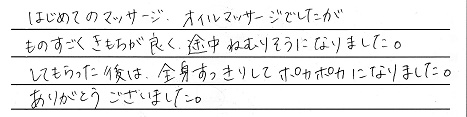 はじめてのマッサージ、オイルマッサージでしたが
ものすごくきもちが良く、途中ねむりそうになりました。
してもらった後は、全身すっきりしてポカポカになりました。
ありがとうございました。